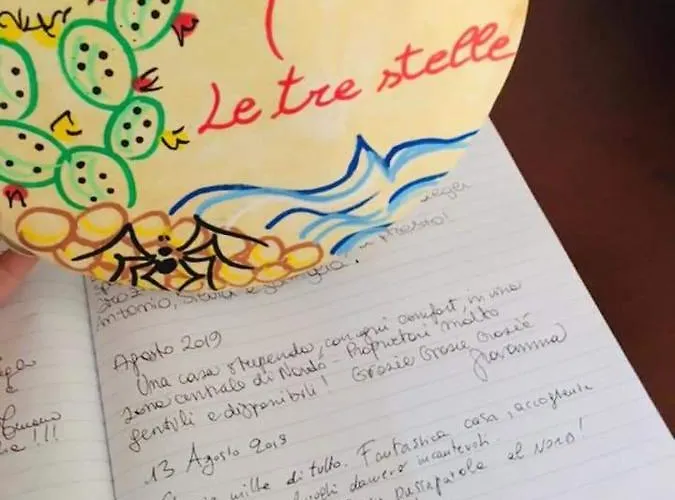 Le tre stelle
presto!
Antonio,
Agosto 2019
Una casa stupenda, con ogni comfort, in una
zona centrale di Nardò - Proprietari molto
gentili e disponibili! Grazie Grazie Grazie
Giovanna
13 Agosto 2019
mille di tutto. Fantastica casa, accogliente
luoghi davvero incantevoli.
Passaparola al Nord!
!!!